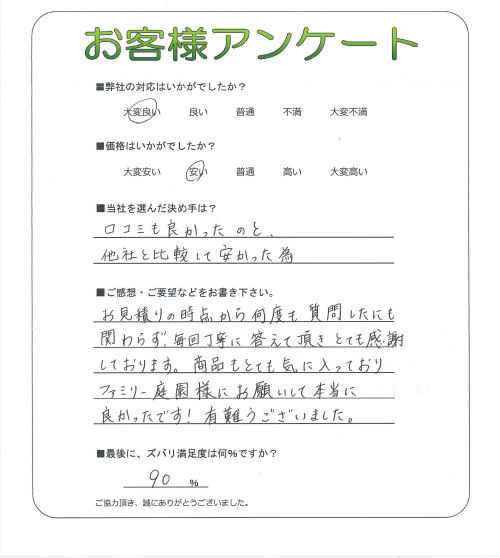 お客様アンケート
■弊社の対応はいかがでしたか？
大変良い 良い 普通 不満 大変不満
■価格はいかがでしたか？
大変安い 安い 普通 高い 大変高い
■当社を選んだ決め手は？
口コミも良かったのと、
他社と比較して安かった為
■ご感想・ご要望などをお書き下さい。
お見積りの時点から何度も質問したにも
関わらず、毎回丁寧に答えて頂きとても感謝
しております。商品もとても気に入っており
ファミリー庭園様にお願いして本当に
良かったです！有難うございました。
■最後に、ズバリ満足度は何%ですか？
90 %
ご協力頂き、誠にありがとうございました。